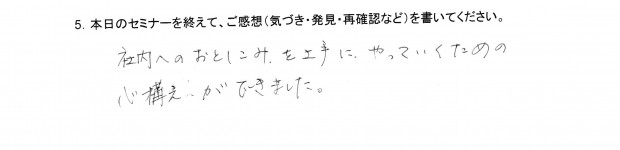 5. 本日のセミナーを終えて、ご感想（気づき・発見・再確認など）を書いてください。
社内へのおとしこみを上手に、やっていくための
心構えができました。